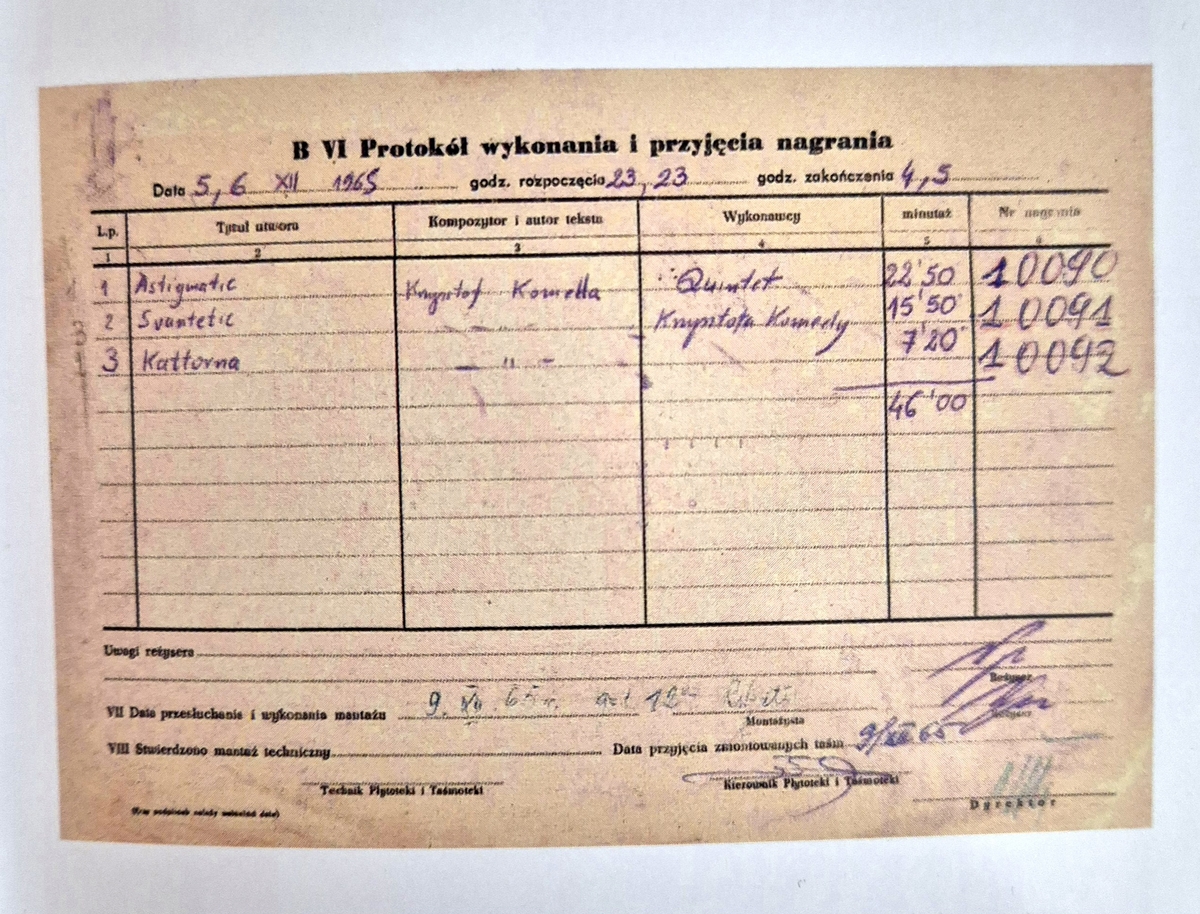 B VI Protokół wykonania i przyjęcia nagrania
Data 5, 6 XII 1965 godz. rozpoczęcia 23, 23 godz. zakończenia 4, 5
L.p. Tytuł utworu Kompozytor i autor tekstu Wykonawcy minutaż Nr nagrania
1 2 3 4 5 6
1 Astigmatic Krzysztof Komeda Quintet 22'50 10090
2 Svantetic — " — Krzysztofa Komedy 15'50" 10091
3 Kattorna — " — 7'20" 10092
46'00
Uwagi reżysera
Reżyser
VII Data przesłuchania i wykonania montażu 9. XII 65 r. 12
Montażysta
VIII Stwierdzono montaż techniczny Data przyjęcia zmontowanych taśm 9/XII 65
Technik Płytoteki i Taśmoteki Kierownik Płytoteki i Taśmoteki
Dyrektor